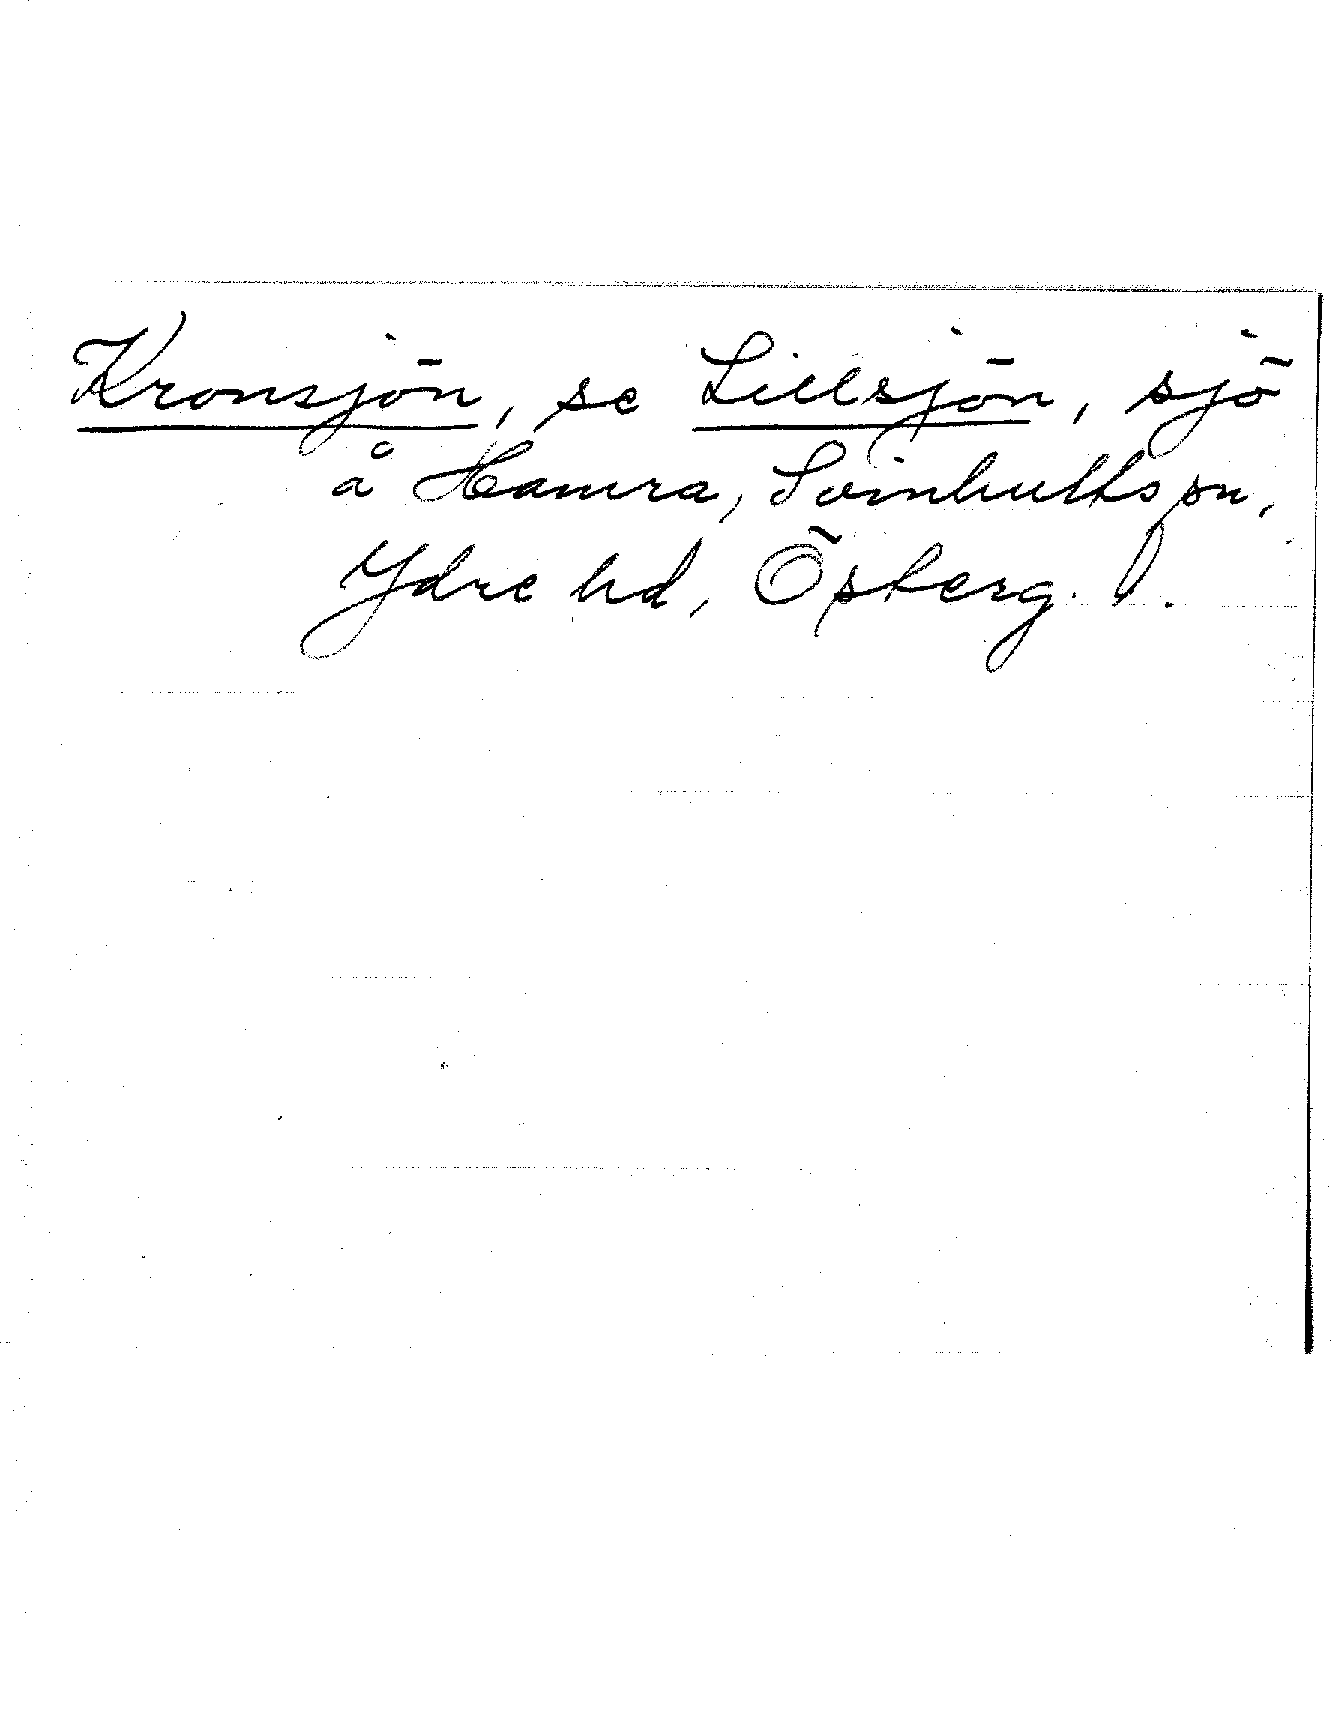 Kronsjön, se Lillsjön, sjö
å Hamra, Svinhults sn,
Ydre hd, Österg. l.